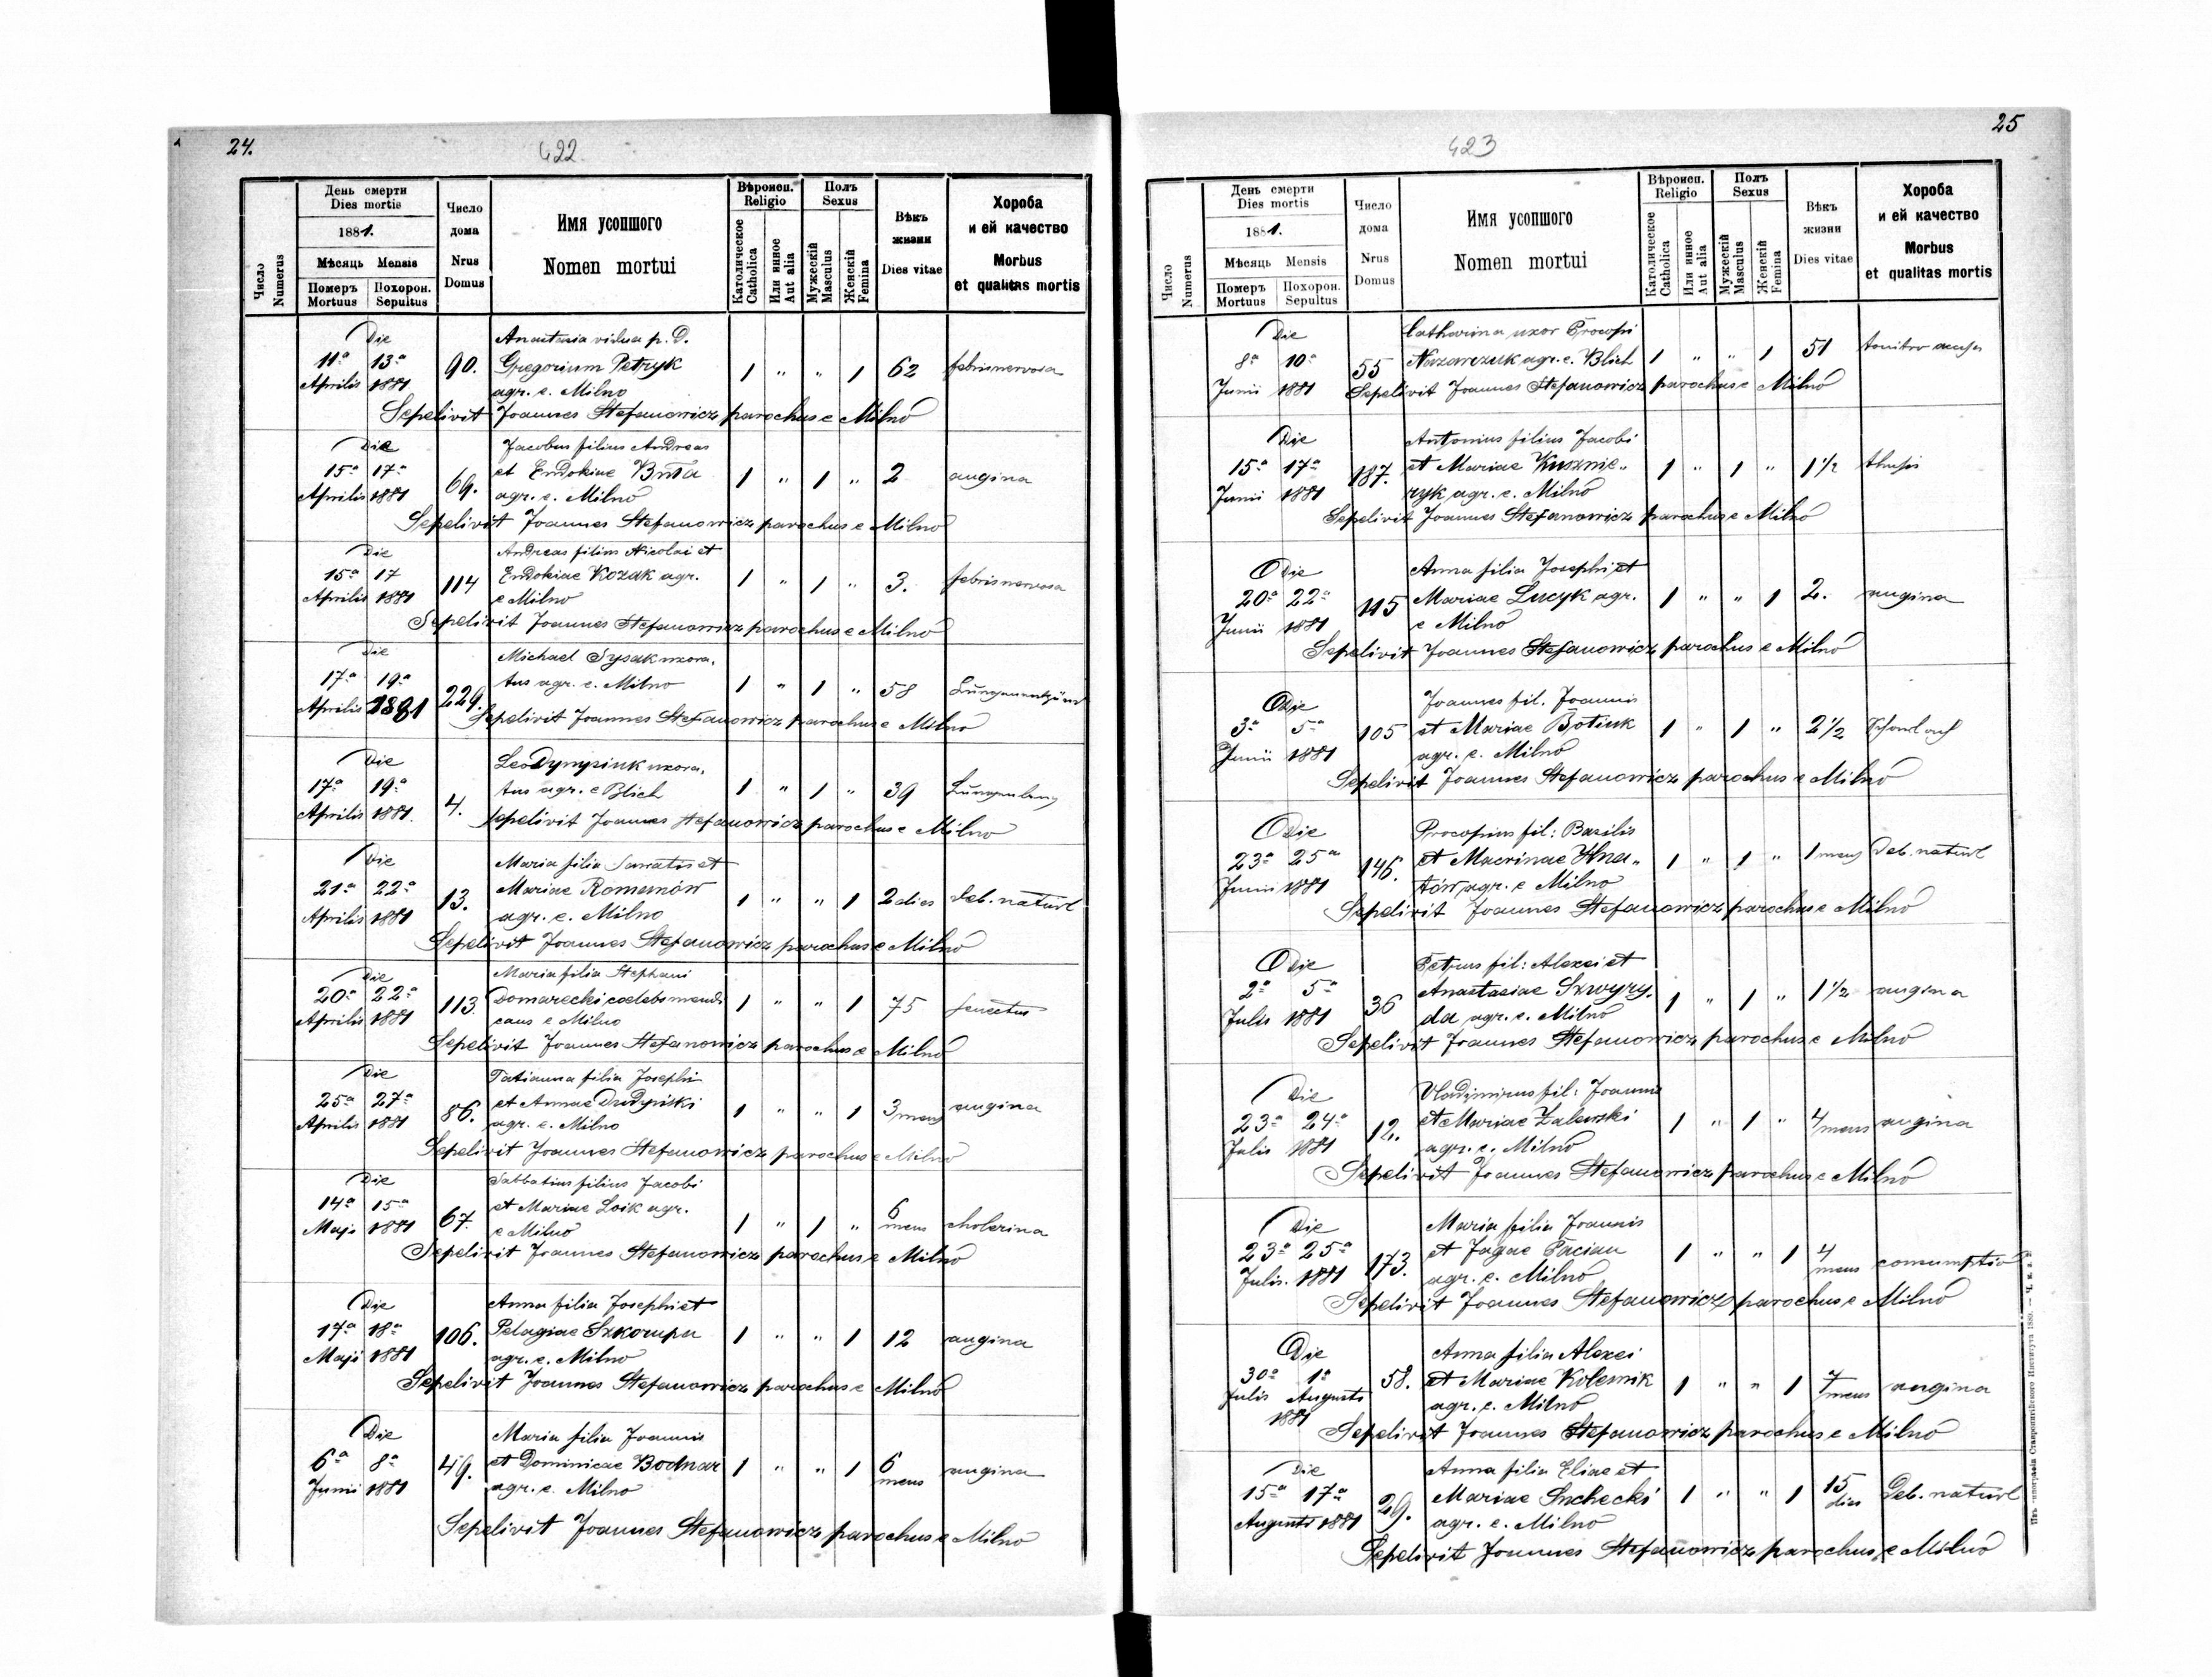 24.
422
День смерти
Dies mortis
1881.
Мѣсяць Mensis
Померъ Похорон.
Mortuus Sepultus
Число
Numerus
Число
дома
Nrus
Domus
Имя усопшого
Nomen mortui
Вѣроисп.
Religio
Католическое
Catholica
Или инное
Aut alia
Полъ
Sexus
Мужескій
Masculus
Женскій
Femina
Вѣкъ
жизни
Dies vitae
Хороба
и ей качество
Morbus
et qualitas mortis
Die Anastasia vidua p. D.
11ª 13ª 90. Gregorium Petryk 1 " " 1 62 febris nervosa
Aprilis 1881 agr. e. Milno
Sepelivit Joannes Stefanowicz parochus e Milno
Die Jacobus filius Andreas
15ª 17ª 69. et Eudokiae 1 " 1 " 2 angina
Aprilis 1881 agr. e. Milno
Sepelivit Joannes Stefanowicz parochus e Milno
Die Andreas filius Nicolai et
15ª 17 114 Eudokiae Kozak agr. 1 " 1 " 3. febris nervosa
Aprilis 1881 e Milno
Sepelivit Joannes Stefanowicz parochus e Milno
Die Michael Sysak uxora,
17ª 19ª 229. tus agr. e. Milno 1 " 1 " 58
Aprilis 1881
Sepelivit Joannes Stefanowicz parochus e Milno
Die Leo uxora,
17ª 19ª 4. tus agr. e Blich 1 " 1 " 39
Aprilis 1881.
Sepelivit Joannes Stefanowicz parochus e Milno
Die Maria filia et
21ª 22ª 13. Mariae Romanów 1 " " 1 2 dies deb. naturl
Aprilis 1881 agr. e. Milno
Sepelivit Joannes Stefanowicz parochus e Milno
Die Maria filia Stephani
20ª 22ª 113. Domarecki coelebs mendi 1 " " 1 75 senectus
Aprilis 1881 cans e Milno
Sepelivit Joannes Stefanowicz parochus e Milno
Die Tatianna filia Josephi
25ª 27ª 86. et Annae Dudyński 1 " " 1 3 mens angina
Aprilis 1881 agr. e. Milno
Sepelivit Joannes Stefanowicz parochus e Milno
Die Sabbatius filius Jacobi
14ª 15ª 67. et Mariae Loik agr. 1 " 1 " 6 mens cholerina
Maji 1881 e Milno
Sepelivit Joannes Stefanowicz parochus e Milno
Die Anna filia Josephi et
17ª 18ª 106. Pelagiae Szkorupa 1 " " 1 12 angina
Maji 1881 agr. e. Milno
Sepelivit Joannes Stefanowicz parochus e Milno
Die Maria filia Joannis
6ª 8ª 49. et Dominicae Bodnar 1 " " 1 6 mens angina
Junii 1881 agr. e. Milno
Sepelivit Joannes Stefanowicz parochus e Milno
25
423
День смерти
Dies mortis
1881.
Мѣсяць Mensis
Померъ Похорон.
Mortuus Sepultus
Число
Numerus
Число
дома
Nrus
Domus
Имя усопшого
Nomen mortui
Вѣроисп.
Religio
Католическое
Catholica
Или инное
Aut alia
Полъ
Sexus
Мужескій
Masculus
Женскій
Femina
Вѣкъ
жизни
Dies vitae
Хороба
и ей качество
Morbus
et qualitas mortis
Die Catharina uxor Procopii
8ª 10ª 55 Nazarczuk agr. e. Blich 1 " " 1 51
Junii 1881 Sepelivit Joannes Stefanowicz parochus e Milno
Die Antonius filius Jacobi
15ª 17ª 187. et Mariae Kusznie„ 1 " 1 " 1½
Junii 1881 ryk agr. e. Milno
Sepelivit Joannes Stefanowicz parochus e Milno
Die Anna filia Josephi et
20ª 22ª 115 Mariae Lucyk agr. 1 " " 1 2. angina
Junii 1881 e Milno
Sepelivit Joannes Stefanowicz parochus e Milno
Die Joannes fil. Joannis
3ª 5ª 105 et Mariae Botiuk 1 " 1 " 2½
Junii 1881 agr. e. Milno
Sepelivit Joannes Stefanowicz parochus e Milno
Die Procopius fil: Basilis
23ª 25ª 146. et Macrinae Hna„ 1 " 1 " 1 mens deb. naturl
Junii 1881 tów agr. e Milno
Sepelivit Joannes Stefanowicz parochus e Milno
Die Petrus fil: Alexei et
2ª 5ª 36 Anastasiae Szwyry. 1 " 1 " 1½ angina
Julis 1881 da agr. e. Milno
Sepelivit Joannes Stefanowicz parochus e Milno
Die Vladimirus fil: Joannis
23ª 24ª 12. et Mariae Zalewski 1 " 1 " 4 mens angina
Julis 1881 agr. e. Milno
Sepelivit Joannes Stefanowicz parochus e Milno
Die Maria filia Joannis
23ª 25ª 173. et Jagae Pacian 1 " " 1 4 mens consumptio
Julis. 1881 agr. e. Milno
Sepelivit Joannes Stefanowicz parochus e Milno
Die Anna filia Alexei
30ª 1ª 58. et Mariae Kolesnik 1 " " 1 7 mens angina
Julis Augusti agr. e. Milno
1881
Sepelivit Joannes Stefanowicz parochus e Milno
Die Anna filia Eliae et
15ª 17ª 29. Mariae Suchecki 1 " " 1 15 dies Deb. naturl
Augusti 1881 agr. e. Milno
Sepelivit Joannes Stefanowicz parochus e Milno
Ставропигійского Института 1880.